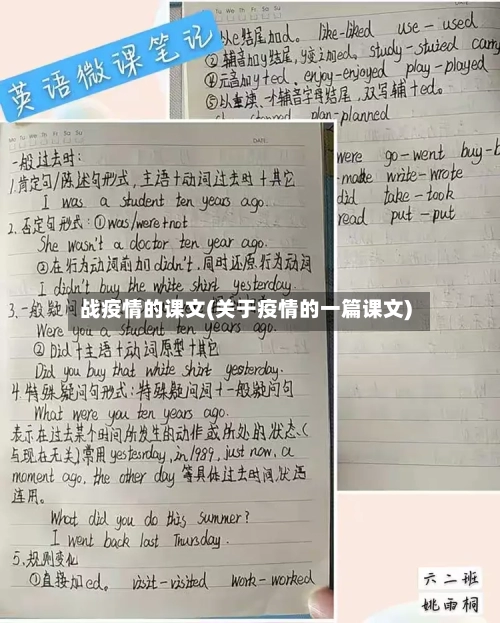 英语微课笔记
以e结尾加d. like-liked use-used
②辅音加y结尾,y变i加ed. study-studied carry
④元音加y+ed. enjoy-enjoyed play-played
⑤以重读、一个辅音字母结尾,双写辅+ed.
plan-planned
were go-went buy-b
-made write-wrote
did take-took
read put-put
一般过去时:
1.肯定句/陈述句形式,主语+动词过去时+其它
I was a student ten years ago.
2.否定句形式:①was/were+not
She wasn't a doctor ten year ago.
②在行为动词前加didn't.同时还原行为动词
I didn't buy the white shirt yesterday.
3.一般疑问
战疫情的课文(关于疫情的一篇课文)
Were you a student ten years ago.
②Did+主语+动词原型+其它
Did you buy that white shirt yesterday.
4.特殊疑问句形式:特殊疑问词+一般疑问句
What were you ten years ago.
表示在过去某个时间所发生的动作或所处的状态.(
与现在无关)常用yesterday,in 1989, just now, a
moment ago, the other day 等具体过去时间状语
连用。
What did you do this summer?
I went back last Thursday.
5.规则变化
①直接加ed. visit-visited work-worked
六二班
姚雨桐